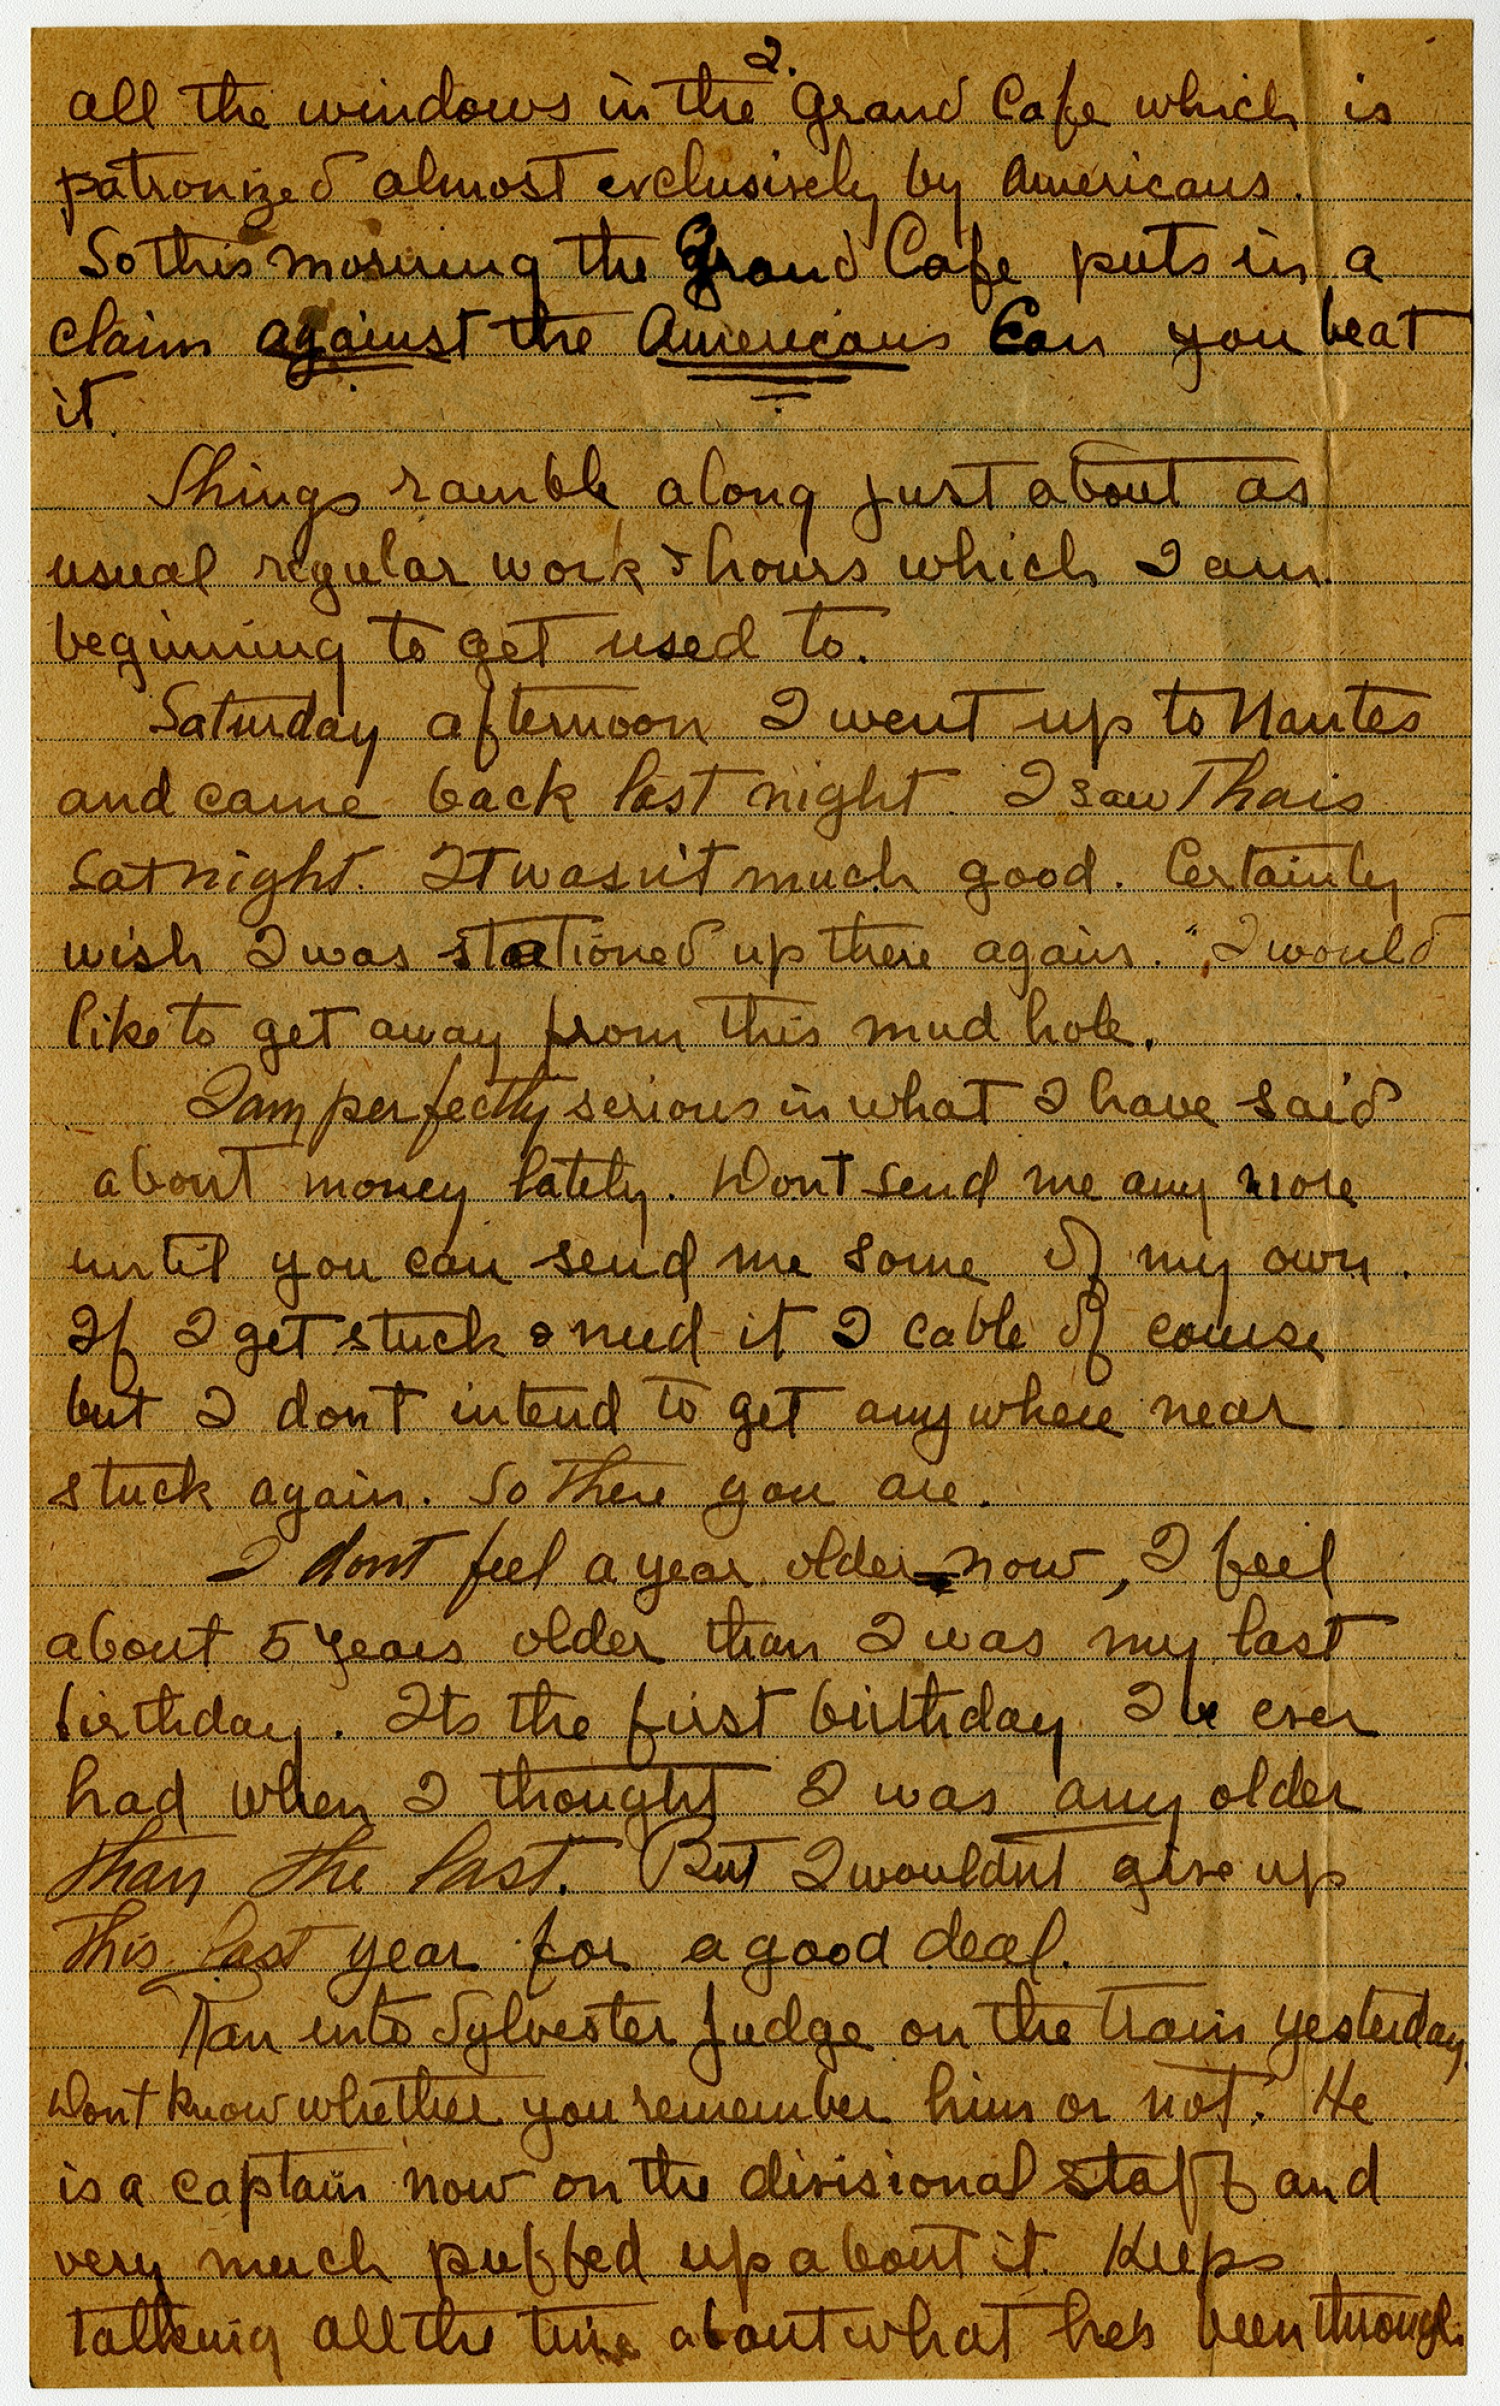 2.
all the windows in the Grand Cafe which is
patronized almost exclusively by Americans.
So this morning the Grand Cafe puts in a
claim against the Americans Can you beat
it.
Things ramble along just about as
usual regular work & hours which I am
beginning to get used to.
Saturday afternoon I went up to Nantes
and came back last night. I saw Thais
Sat night. It wasn't much good. Certainly
wish I was stationed up there again. I would
like to get away from this mud hole.
I am perfectly serious in what I have said
about money lately. Dont send me any more
until you can send me some of my own.
If I get stuck & need it I cable of course
but I don't intend to get anywhere near
stuck again. So there you are.
I dont feel a year older now, I feel
about 5 years older than I was my last
birthday. Its the first birthday Ive ever
had when I thought I was any older
than the last. But I wouldnt give up
this last year for a good deal.
Ran into Sylvester Judge on the train yesterday.
Dont know whether you remember him or not. He
is a captain now on the divisional staff and
very much puffed up about it. Keeps
talking all the time about what hes been through